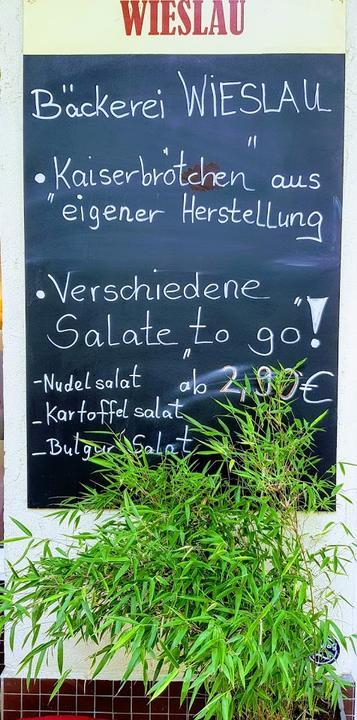 WIESLAU
Bäckerei WIESLAU
• Kaiserbrötchen aus
"eigener Herstellung"
• Verschiedene
Salate "to go"!
-Nudelsalat ab 2,90€
-Kartoffelsalat
-Bulgur Salat